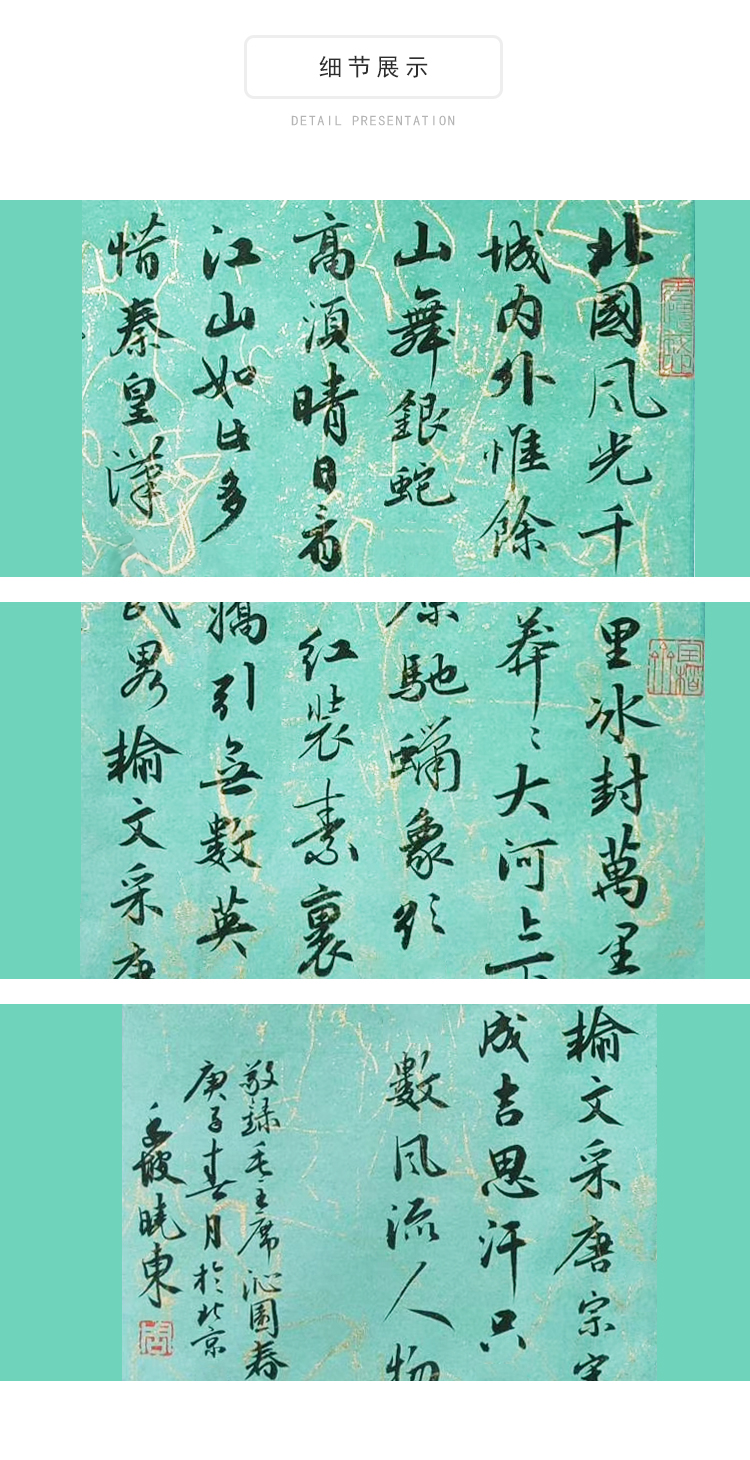 细节展示
DETAIL PRESENTATION
北國风光千
城内外惟餘
山舞銀蛇
高須晴日看
江山如此多
惜秦皇漢
里冰封萬里
莽々大河上下
馳蠟象欲
红裝素裹
嬌引無數英
略輸文采唐
輸文采唐宗宋
成吉思汗只
數风流人物
敬録毛主席沁園春
庚子春月於北京
曉東